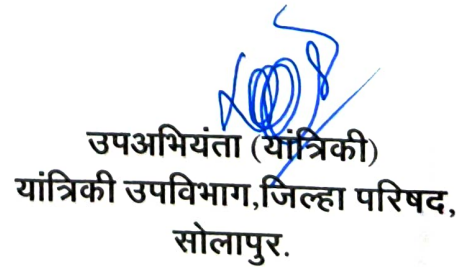 उपअभियंता (यांत्रिकी)
यांत्रिकी उपविभाग,जिल्हा परिषद,
सोलापुर.